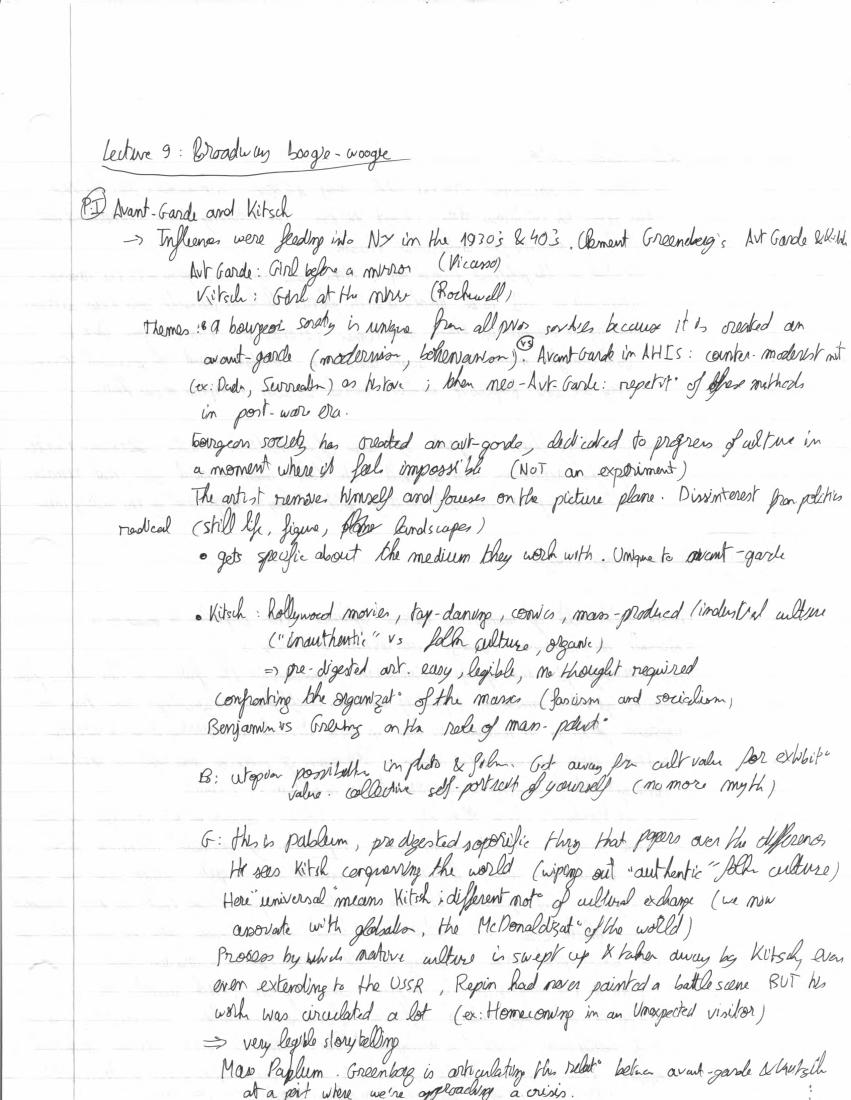 Lecture 9 : Broadway boogie-woogie
P.I Avant-Garde and Kitsch
→ Influences were feeding into NY in the 1930's & 40's. Clement Greenberg's Avt Garde & Kitsh
Avt Garde : Girl before a mirror (Picasso)
Kitsch : Girl at the mirror (Rockwell)
Themes : a bourgeois society is unique from all prior societies because it is created an
avant-garde (modernism, bohemianism). vs Avant Garde in AHIS : counter-modernist mt
(ex: Dada, Surrealism) as historic ; then neo-Avt-Garde : repetit° of these methods
in post-ware era.
bourgeois society has created an avt-garde, dedicated to progress of culture in
a moment where it feels impossible (NOT an experiment)
The artist removes himself and focuses on the picture plane. Dissinterest from politics
radical (still life, figure, landscapes)
• gets specific about the medium they work with. Unique to avant-garde
• Kitsch : Hollywood movies, tap-dancing, comics, mass-produced/industrial culture
("inauthentic" vs folk culture, organic)
⇒ pre-digested art. easy, legible, no thought required
confronting the organizat° of the masses (fascism and socialism)
Benjamin vs Greberg on the role of mass-product°
B : utopian possibilities in photo & film. Get away from cult value for exhibit°
value. collective self-portrait of yourself (no more myth)
G : this is pablum, predigested soporific thing that papers over the differences
He sees Kitsh conquering the world (wiping out "authentic" folk culture)
Here "universal" means Kitsh ; different not° of cultural exchange (we now
associate with globalisa, the McDonaldizat° of the world)
Process by which native culture is swept up & taken away by Kitsch, even
even extending to the USSR, Repin had never painted a battle scene BUT his
work was circulated a lot (ex: Homecoming in an Unexpected visitor)
⇒ very legible storytelling
Mass Paplum. Greenberg is articulating this relat° between avant-garde & kutsih
at a point where we're approaching a crisis.